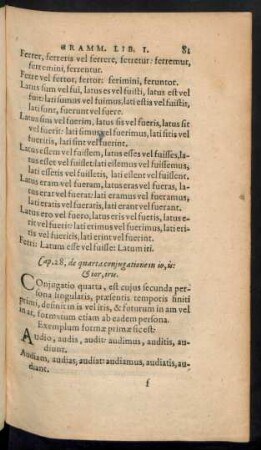 GRAMM. LIB. I. 81
Ferrer, ferreris vel ferrere, ferretur: ferremur,
ferremini, ferrentur.
Ferre vel fertor, fertor: ferimini, feruntor.
Latus sum vel fui, latus es vel fuisti, latus est vel
fuit: lati sumus vel fuimus, lati estis vel fuistis,
lati sunt, fuerunt vel fuere.
Latus sim vel fuerim, latus sis vel fueris, latus sit
vel fuerit: lati simus vel fuerimus, lati sitis vel
fueritis, lati sint vel fuerint.
Latus essem vel fuissem, latus esses vel fuisses, la-
tus esset vel fuisset: lati essemus vel fuissemus,
lati essetis vel fuissetis, lati essent vel fuissent.
Latus eram vel fueram, latus eras vel fueras, la-
tus erat vel fuerat: lati eramus vel fueramus,
lati eratis vel fueratis, lati erant vel fuerant.
Latus ero vel fuero, latus eris vel fueris, latus erit
vel fuerit: lati erimus vel fuerimus, lati eritis
vel fueritis, lati erint vel fuerint.
Ferri: Latum esse vel fuisse: Latum iri.
Cap. 28. de quarta conjugatione in io, is:
& ior, iris.
Conjugatio quarta, est cujus secunda per-
sona singularis, præsentis temporis finiti
primi, definit in is vel iris, & futurum in am vel
in ar, formarum etiam ab eadem persona.
Exemplum formæ primæ sic est:
Audio, audis, audit: audimus, auditis, au-
diunt.
Audiam, audias, audiat: audiamus, audiatis, au-
diant.
f